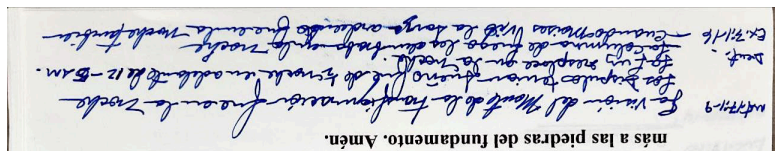 más a las piedras del fundamento. Amén.
Mt 17:1-9 La visión del Monte de la transfiguración fue en la noche
Los discipulos tenian sueño fue de noche en adelante de 12 - 5 am.
La luz en la noche.
Deut. - La columna de fuego les en la noche
Ex. 3:1-16 - Cuando Moises vio la sarza ardiendo fue en la noche tambien